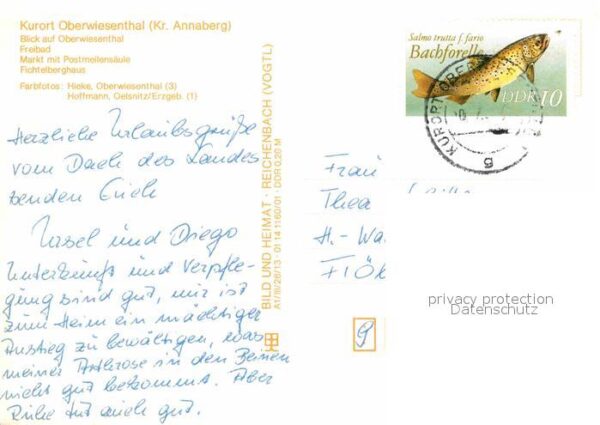 Kurort Oberwiesenthal (Kr. Annaberg)
Blick auf Oberwiesenthal
Freibad
Markt mit Postmeilensäule
Fichtelberghaus
Farbfotos: Hieke, Oberwiesenthal (3)
Hoffmann, Oelsnitz/Erzgeb. (1)
Herzliche Urlaubsgrüße
vom Dach des Landes
senden Euch
und Diego
Unterkunft und Verpfle-
gung sind gut, nur ist
zum Heim ein mächtiger
Anstieg zu bewältigen, was
meiner Arthrose in den Beinen
nicht gut bekommt. Aber
Ruhe tut auch gut.
BILD UND HEIMAT · REICHENBACH (VOGTL)
A1/III/26/13 01 14 1160/01 DDR 0,20 M
Salmo trutta f. fario
Bachforelle
DDR 10
KURORT OBER
5
Frau
Thea
H.-Wa
FLÖ
9
privacy protection
Datenschutz